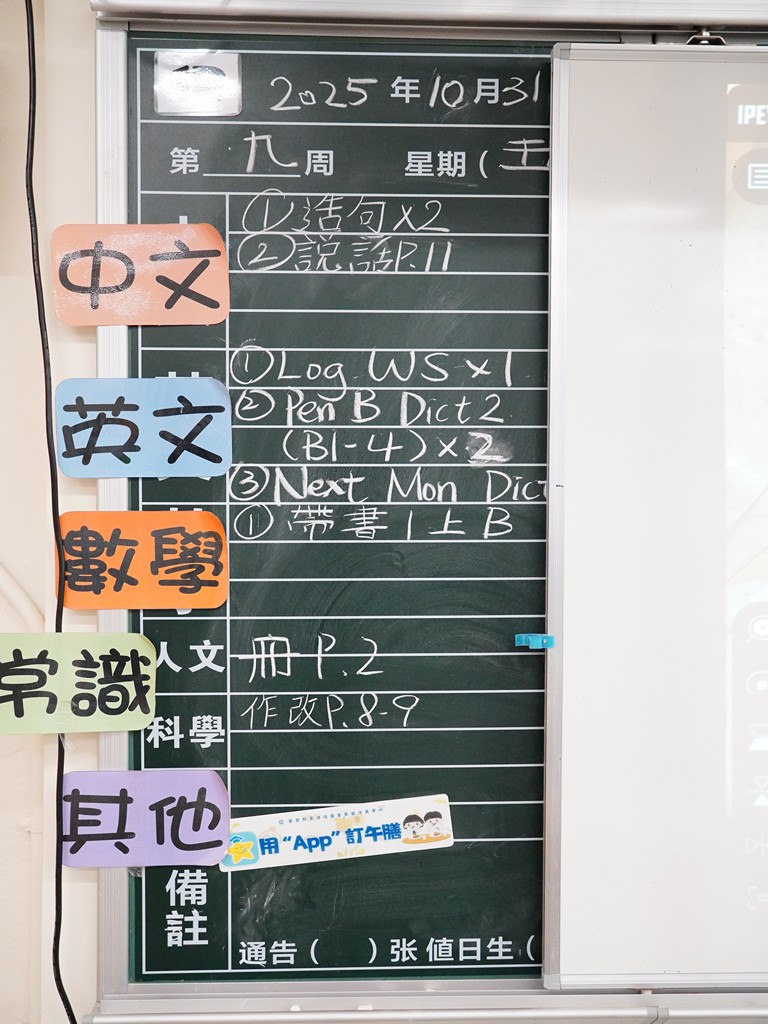 2025年10月31
第九周 星期(五
中文
①造句x2
②說話P.11
英文
①Log WS x1
②Pen B Dict 2
(B1-4)x2
③Next Mon Dict
數學
①帶書1上B
常識
人文 冊 P.2
科學 作改P.8-9
其他
用“App”訂午膳
備註
通告( )张 值日生(
IPE